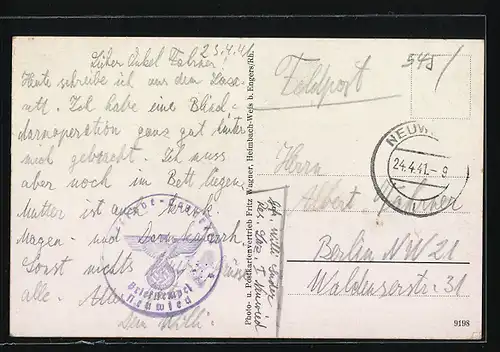 23.4.41
Lieber Onkel Fahrner!
Heute schreibe ich aus dem Laza-
rett. Ich habe eine Blind-
darmoperation ganz gut hinter
mich gebracht. Ich muss
aber noch im Bett liegen.
Mutter ist auch krank
Magen- und Darmkatarrh.
Sonst nichts
alle.
Dein Willi.
Briefstempel
Neuwied
Photo- u. Postkartenvertrieb Fritz Wagner, Heimbach-Weis b. Engers/Rh.
Abs. Willi
Res. Laz. I Neuwied
545
Feldpost
NEUW
24.4.41.-9
Herrn
Albert Fahrner
Berlin NW 21
Waldenserstr. 31
9198